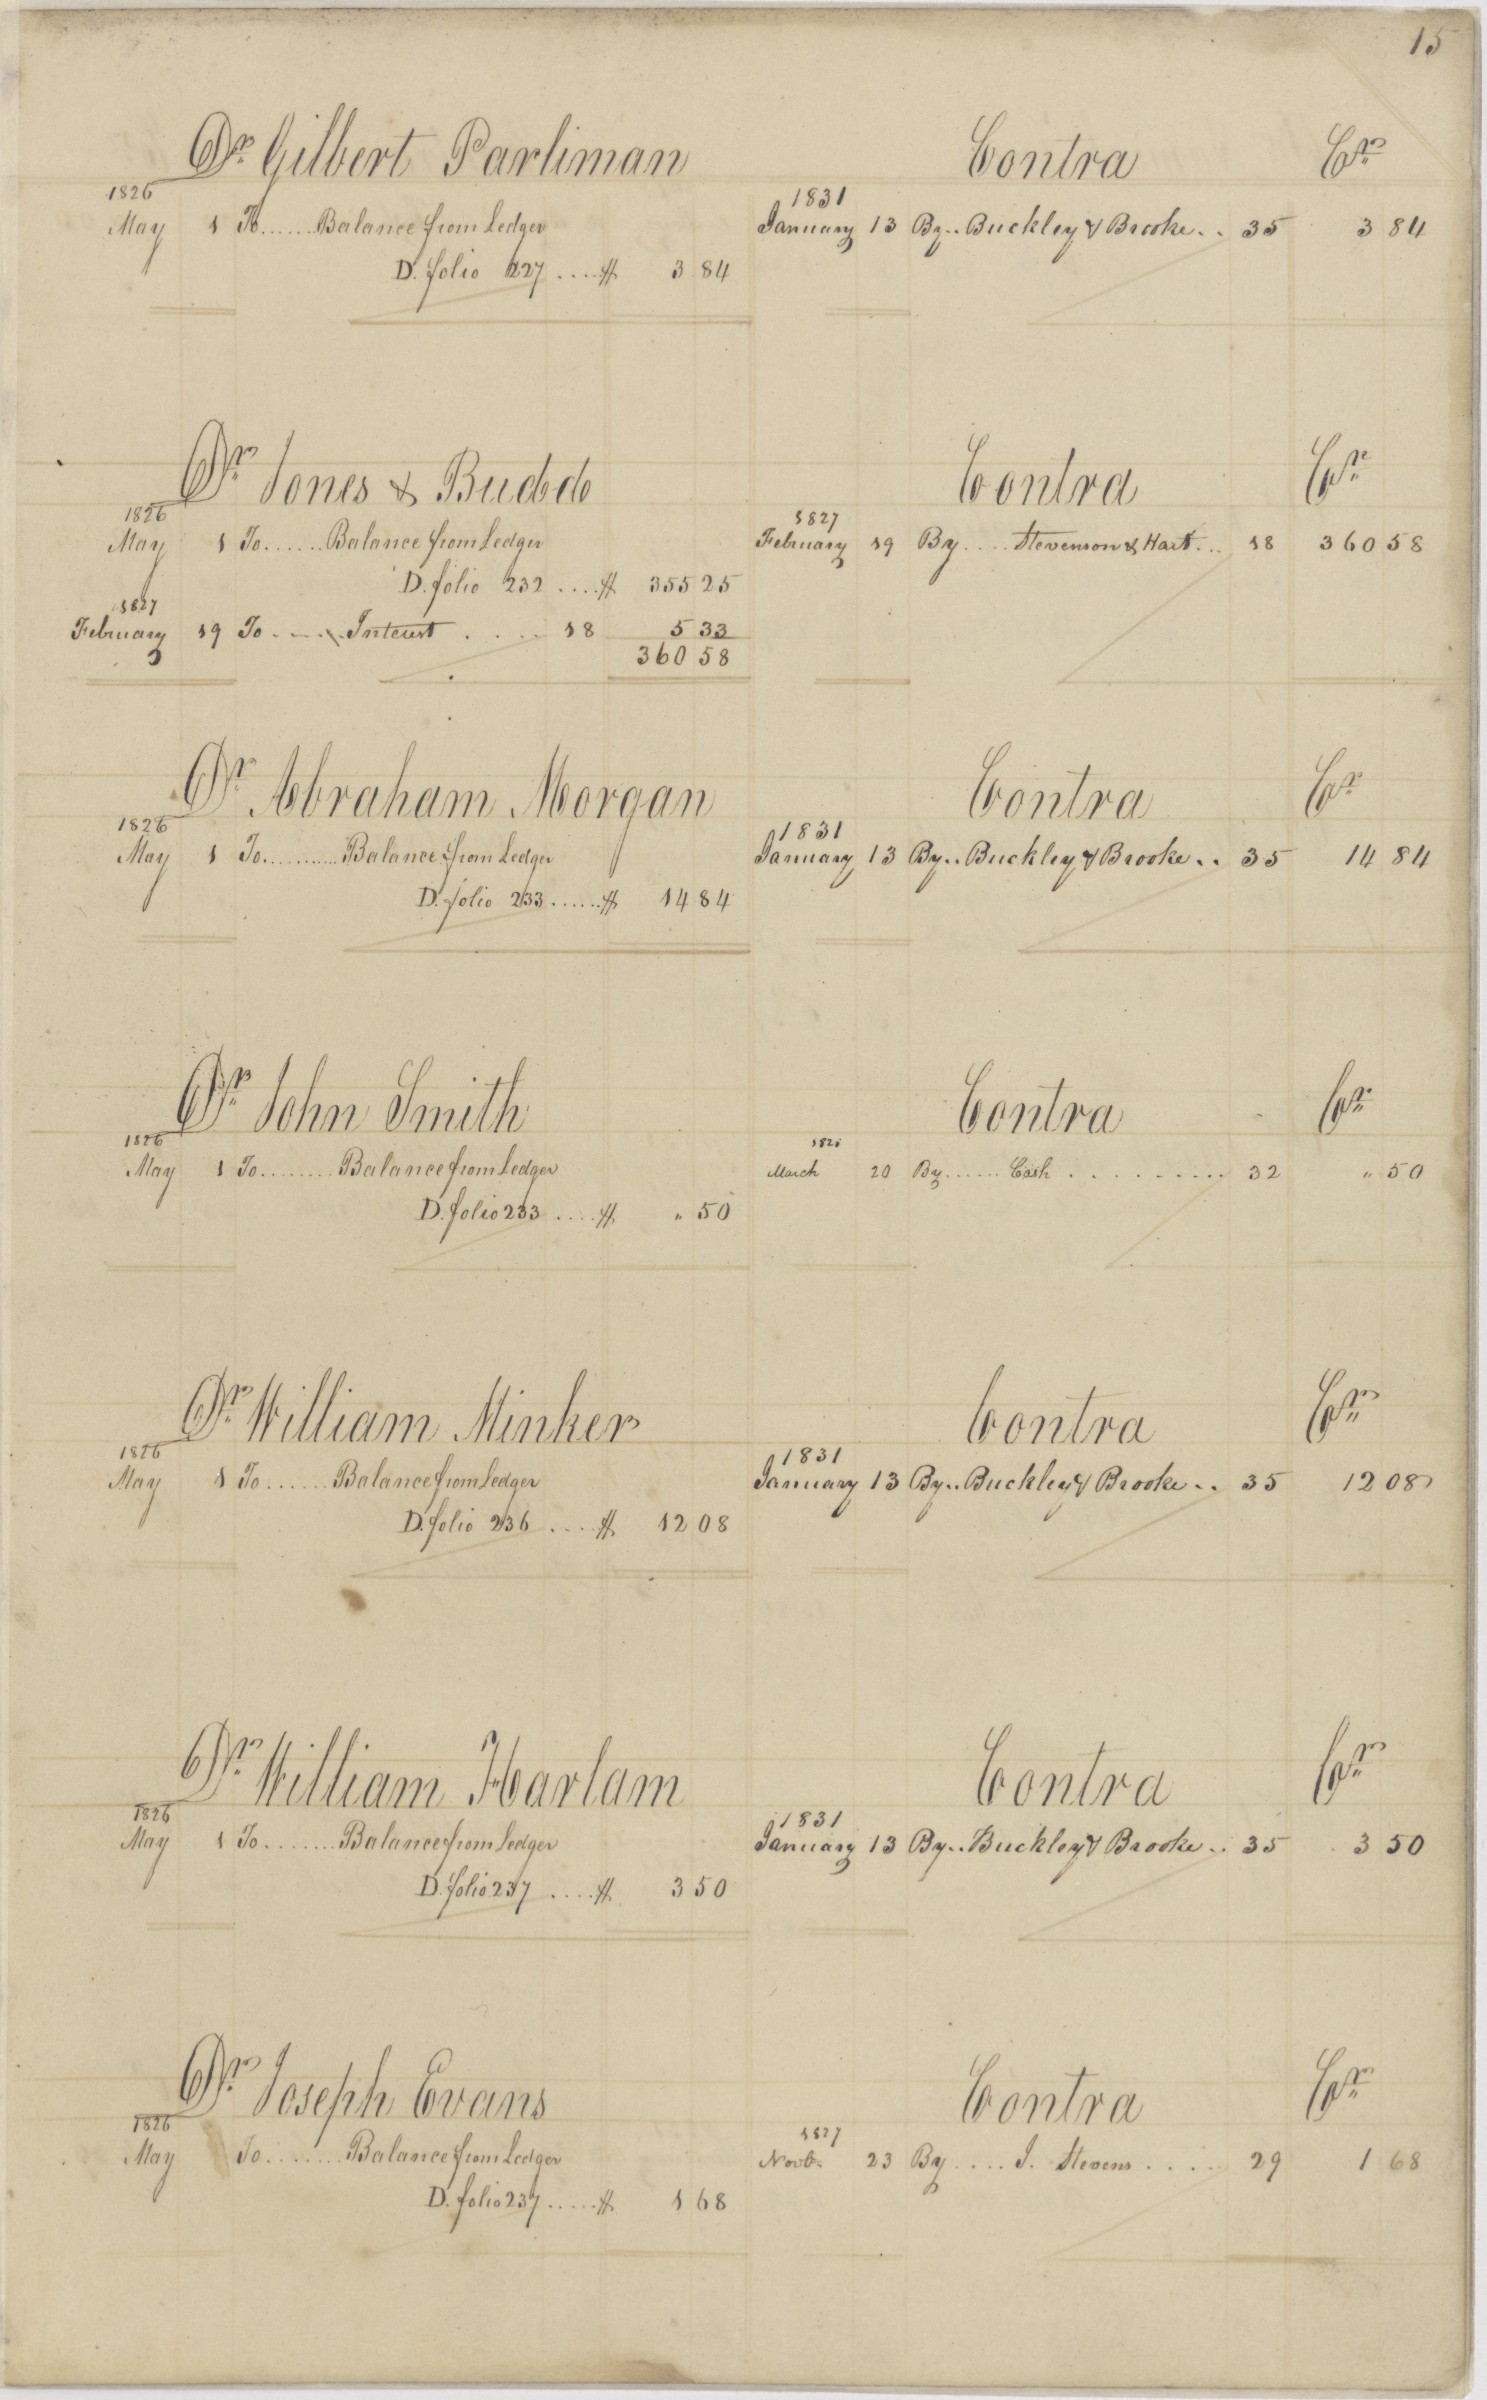 15
Dr. Gilbert Parliman
Contra
Cr.
1826
1831
May 1 To ...... Balance from Ledger
January 13 By .. Buckley & Brooke .. 35 3 84
D. folio 227 .... $ 3 84
Dr. Jones & Budd
Contra
Cr.
1826
1827
May 1 To ...... Balance from Ledger
February 19 By .... Stevenson & Hart ... 18 360 58
D. folio 232 .... $ 355 25
1827
February 19 To .... Interest .... 18 5 33
360 58
Dr. Abraham Morgan
Contra
Cr
1826
1831
May 1 To ........... Balance from Ledger
January 13 By .. Buckley & Brooke .. 35 14 84
D. folio 233 ...... $ 14 84
Dr. John Smith
Contra
Cr.
1826
May 1 To ........ Balance from Ledger
March 20 By ...... Cash ......... 32 " 50
D. folio 233 .... $ " 50
Dr. William Minker
Contra
Cr.
1826
1831
May 1 To ...... Balance from Ledger
January 13 By .. Buckley & Brooke .. 35 12 08
D. folio 236 .... $ 12 08
Dr. William Harlam
Contra
Cr.
1826
1831
May 1 To ....... Balance from Ledger
January 13 By .. Buckley & Brooke .. 35 3 50
D. folio 237 .... $ 3 50
Dr. Joseph Evans
Contra
Cr.
1826
1827
May To ........ Balance from Ledger
Novb. 23 By .... J. Stevens .... 29 1 68
D. folio 237 ..... $ 1 68